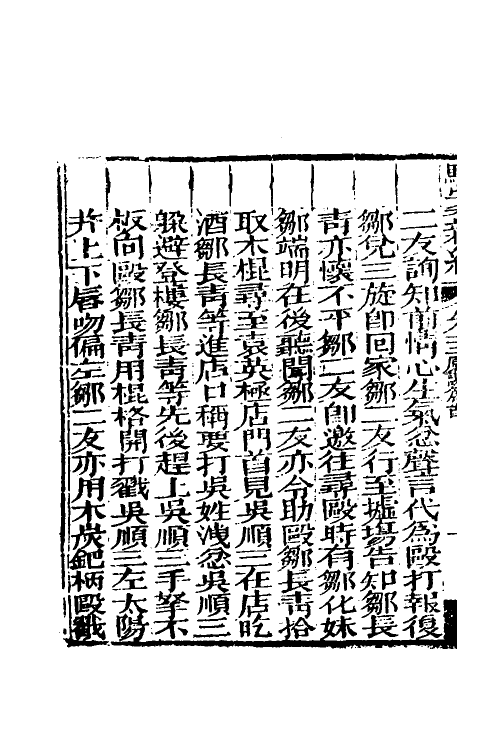 二友詢知前情心生氣忿聲言代為毆打報復
鄒兒三旋卽回家鄒二友行至墟場告知鄒長
靑亦懷不平鄒二友卽邀往尋毆時有鄒化妹
鄒端明在後聽聞鄒二友亦令助毆鄒長靑拾
取木棍尋至袁英極店門首見吳順三在店吃
酒鄒長靑等進店口稱要打吳姓洩忿吳順三
躲避登樓鄒長靑等先後趕上吳順三手拏木
板向毆鄒長靑用棍格開打戳吳順三左太陽
幷上下唇吻偏左鄒二友亦用木炭鈀柄毆戳